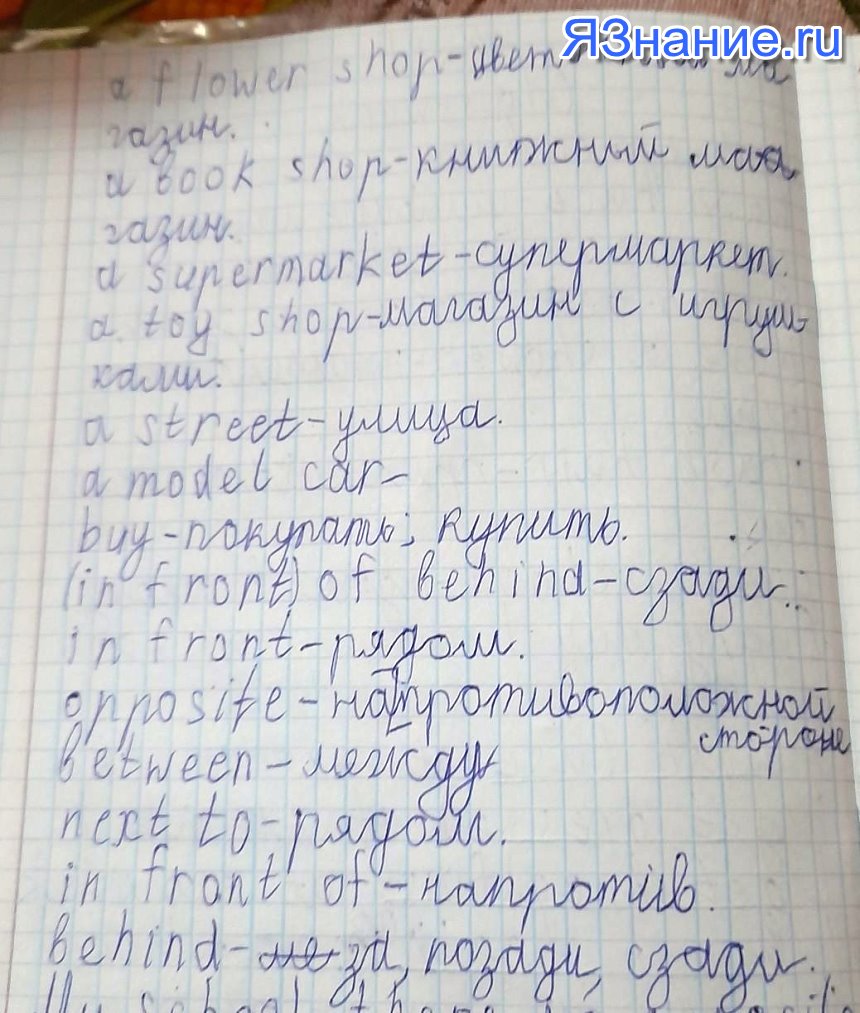 ЯЗнание.ru
a flower shop-цвет ма
газин.
a book shop-книжный маа
газин.
a supermarket-супермаркет.
a toy shop-магазин с игруш-
ками.
a street-улица.
a model car-
buy-покупать; купить.
(in front) of behind-сзади.
in front-рядом.
opposite-на противоположной
стороне
between-между
next to-рядом.
in front of-напротив.
behind-за, позади, сзади.
My school